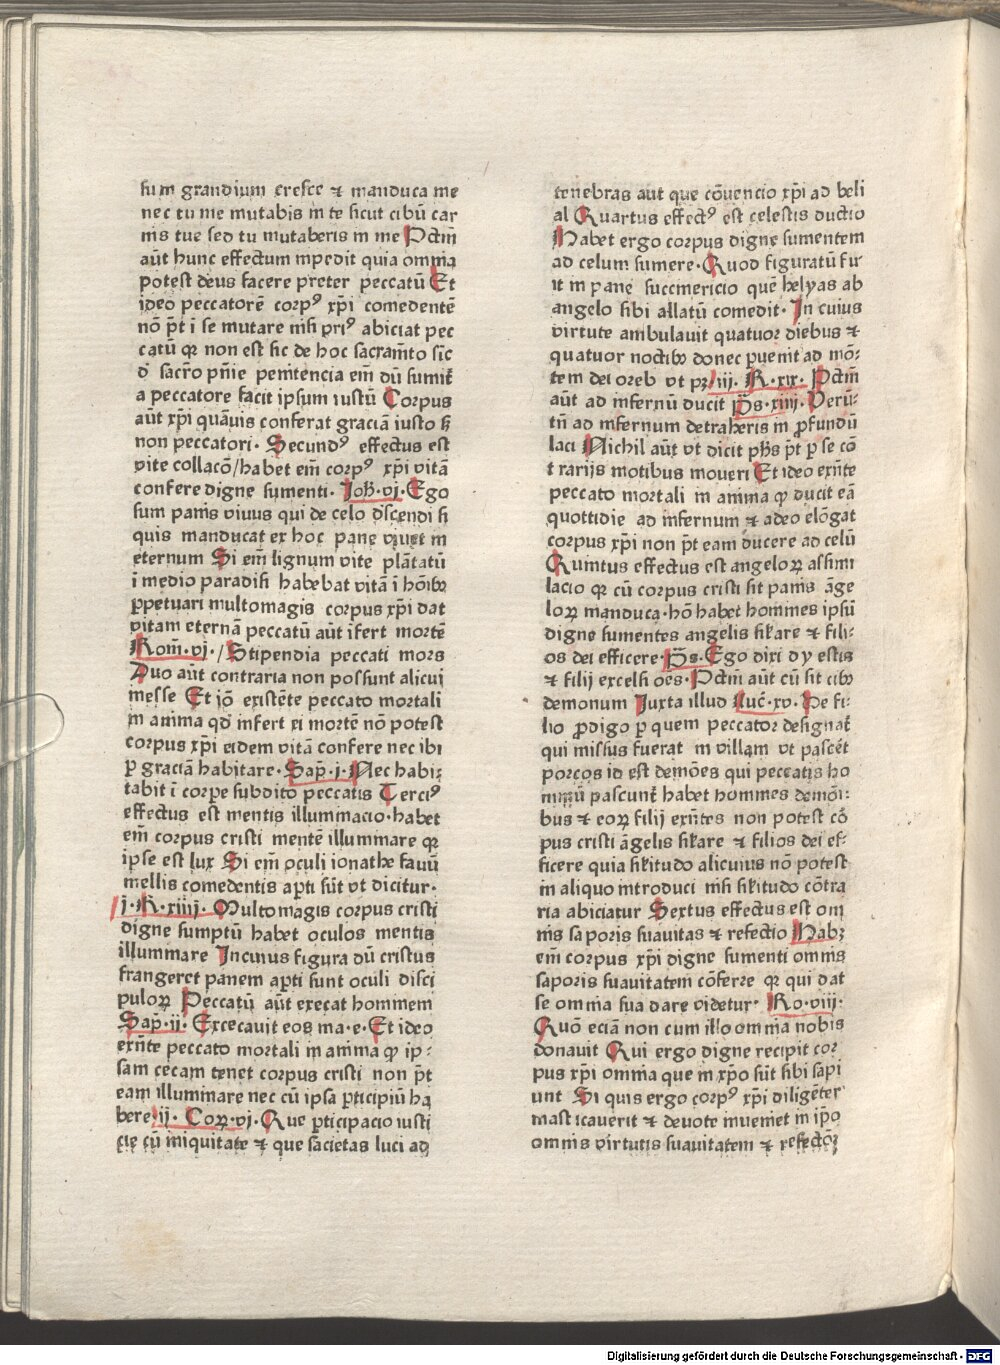 sum grandium cresce ⁊ manduca me
nec tu me mutabis in te sicut cibū car
nis tue sed tu mutaberis in me Pctm̄
aūt hunc effectum inpedit quia omnia
potest deus facere preter peccatū Et
ideo peccatorē corpꝰ xp̄i comedentē
nō p̄t ī se mutare nisi priꝰ abiciat pec
catū qꝛ non est sic de hoc sacram̄to sic̄
d̄ sacr̄o pn̄ie penitencia em̄ dū sumit̄
a peccatore facit ipsum iustū Corpus
aūt xp̄i quāuis conferat graciā iusto ẜ
non peccatori· Secundꝰ effectus est
vite collacō/habet em̄ corpꝰ xp̄i vitā
confere digne sumenti· Joh̄·vj·Ego
sum panis viuus qui de celo d̄scendi si
quis manducat ex hoc pane viuet in
eternum Si em̄ lignum vite plātatū
ī medio paradisi habebat vitā ī hoībꝫ
ꝑpetuari multomagis corpus xp̄i dat
vitam eternā peccatū aūt īfert mortē
Rom̄·vj·/Stipendia peccati mors
Duo aūt contraria non possunt alicui
inesse Et iō existēte peccato mortali
in anima qd̄ infert xi mortē nō potest
corpus xp̄i eidem vitā confere nec ibi
ꝑ graciā habitare·Sap̄·j·Nec habi⸗
tabit ī corpe subdito peccatis Terciꝰ
effectus est mentis illuminacio·habet
em̄ corpus cristi mentē illuminare qꝛ
ipse est lux Si em̄ oculi ionathe fauū
mellis comedentis apti sūt vt dicitur·
j·R·xiiij· Multomagis corpus cristi
digne sumptū habet oculos mentis
illuminare Incuius figura dū cristus
frangeret panem apti sunt oculi disci
puloꝝ Peccatū aūt execat hominem
Sap̄·ii· Excecauit eos ma·e·Et ideo
exn̄te peccato mortali in anima qꝫ ip⸗
sam cecam tenet corpus cristi non p̄t
eam illuminare nec cū ipsa ꝑticipiū ha
bere·ij· Coꝝ·vj·Que ꝑticipacio iusti
cie cū iniquitate ⁊ que societas luci ad
tenebras aut que cōuencio xp̄i ad beli
al Quartus effectꝰ est celestis ductio
Habet ergo corpus digne sumentem
ad celum sumere·Quod figuratū fu⸗
it in pane succinericio quē helyas ab
angelo sibi allatū comedit·In cuius
virtute ambulauit quatuor diebus ⁊
quatuor noctibꝫ donec ꝑuenit ad mō⸗
tem dei oreb vt pꝫ/iij· R·xix· Pctm̄
aūt ad infernū ducit P̄s·xiiij·Verū⸗
tn̄ ad infernum detraheris in ꝓfundū
laci Nichil aūt vt dicit ph̄s p̄t ꝑ se cō
trarijs motibus moueri Et ideo exn̄te
peccato mortali in anima qꝫ ducit eā
quottidie ad infernum ⁊ adeo elōgat
corpus xp̄i non p̄t eam ducere ad celū
Quintus effectus est angeloꝝ assimi
lacio qꝛ cū corpus cristi sit panis āge
loꝝ manduca·hō habet homines ipsū
digne sumentes angelis silare ⁊ fili⸗
os dei efficere·P̄s·Ego dixi dy estis
⁊ filij excelsi oēs·Pctm̄ aūt cū sit cibꝫ
demonum Juxta illud Luc̄·xv·De fi⸗
lio ꝓdigo ꝑ quem peccator designat̄
qui missus fuerat in villam vt pascēt
porcos id est demōes qui peccatis ho
minū pascunt̄ habet homines demōi⸗
bus ⁊ eoꝝ filij exn̄tes non potest cō
pus cristi āgelis silare ⁊ filios dei ef⸗
ficere quia silitudo alicuius nō potest
in aliquo introduci nisi silitudo cōtra
ria abiciatur Sextus effectus est om
nis saporis suauitas ⁊ refectio Habꝫ
em̄ corpus xp̄i digne sumenti omnis
saporis suauitatem cōferre qꝛ qui dat
se omnia sua dare videtur· Ro·viij·
Quō eciā non cum illo omnia nobis
donauit Qui ergo digne recipit cor
pus xp̄i omnia que in xp̄o sūt sibi sapi
unt Si quis ergo corpꝰ xp̄i diligēter
masticauerit ⁊ deuote inueniet in ip̄o
omnis virtutis suauitatem ⁊ refectōꝫ
Digitalisierung gefördert durch die Deutsche Forschungsgemeinschaft - DFG